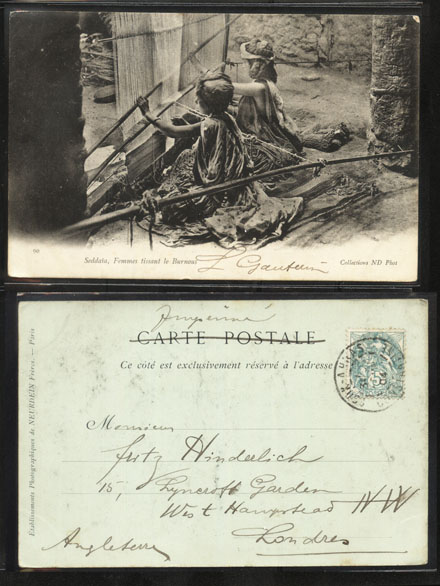 90
Seddata, Femmes tissant le Burnous
Collections ND Phot
Imprimé
CARTE POSTALE
Ce côté est exclusivement réservé à l'adresse
Etablissements Photographiques de NEURDEIN Frères. — Paris
Monsieur
Fritz Hinderlich
15, Lyncroft Garden
West Hampstead NW
Londres
Angleterre